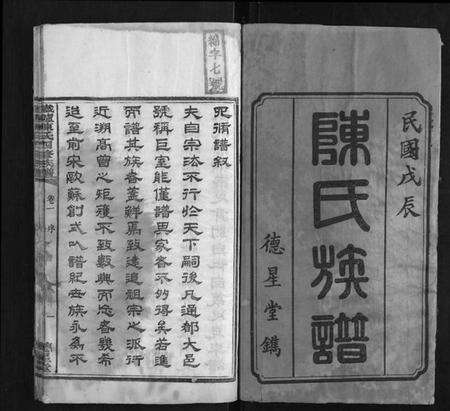 民國戊辰
陳氏族譜
德星堂鐫
福字七號
四脩譜叙
夫自宗法不行於天下嗣後凡通都大邑
號稱巨室能僅譜其家者不多得矣若進
而譜其族者蓋鮮焉致遠追祖宗之派衍
近溯高曾之矩矱不致數典而忘者幾希
迨至前宋歐蘇創式以譜紀世族永為不
卷一 序